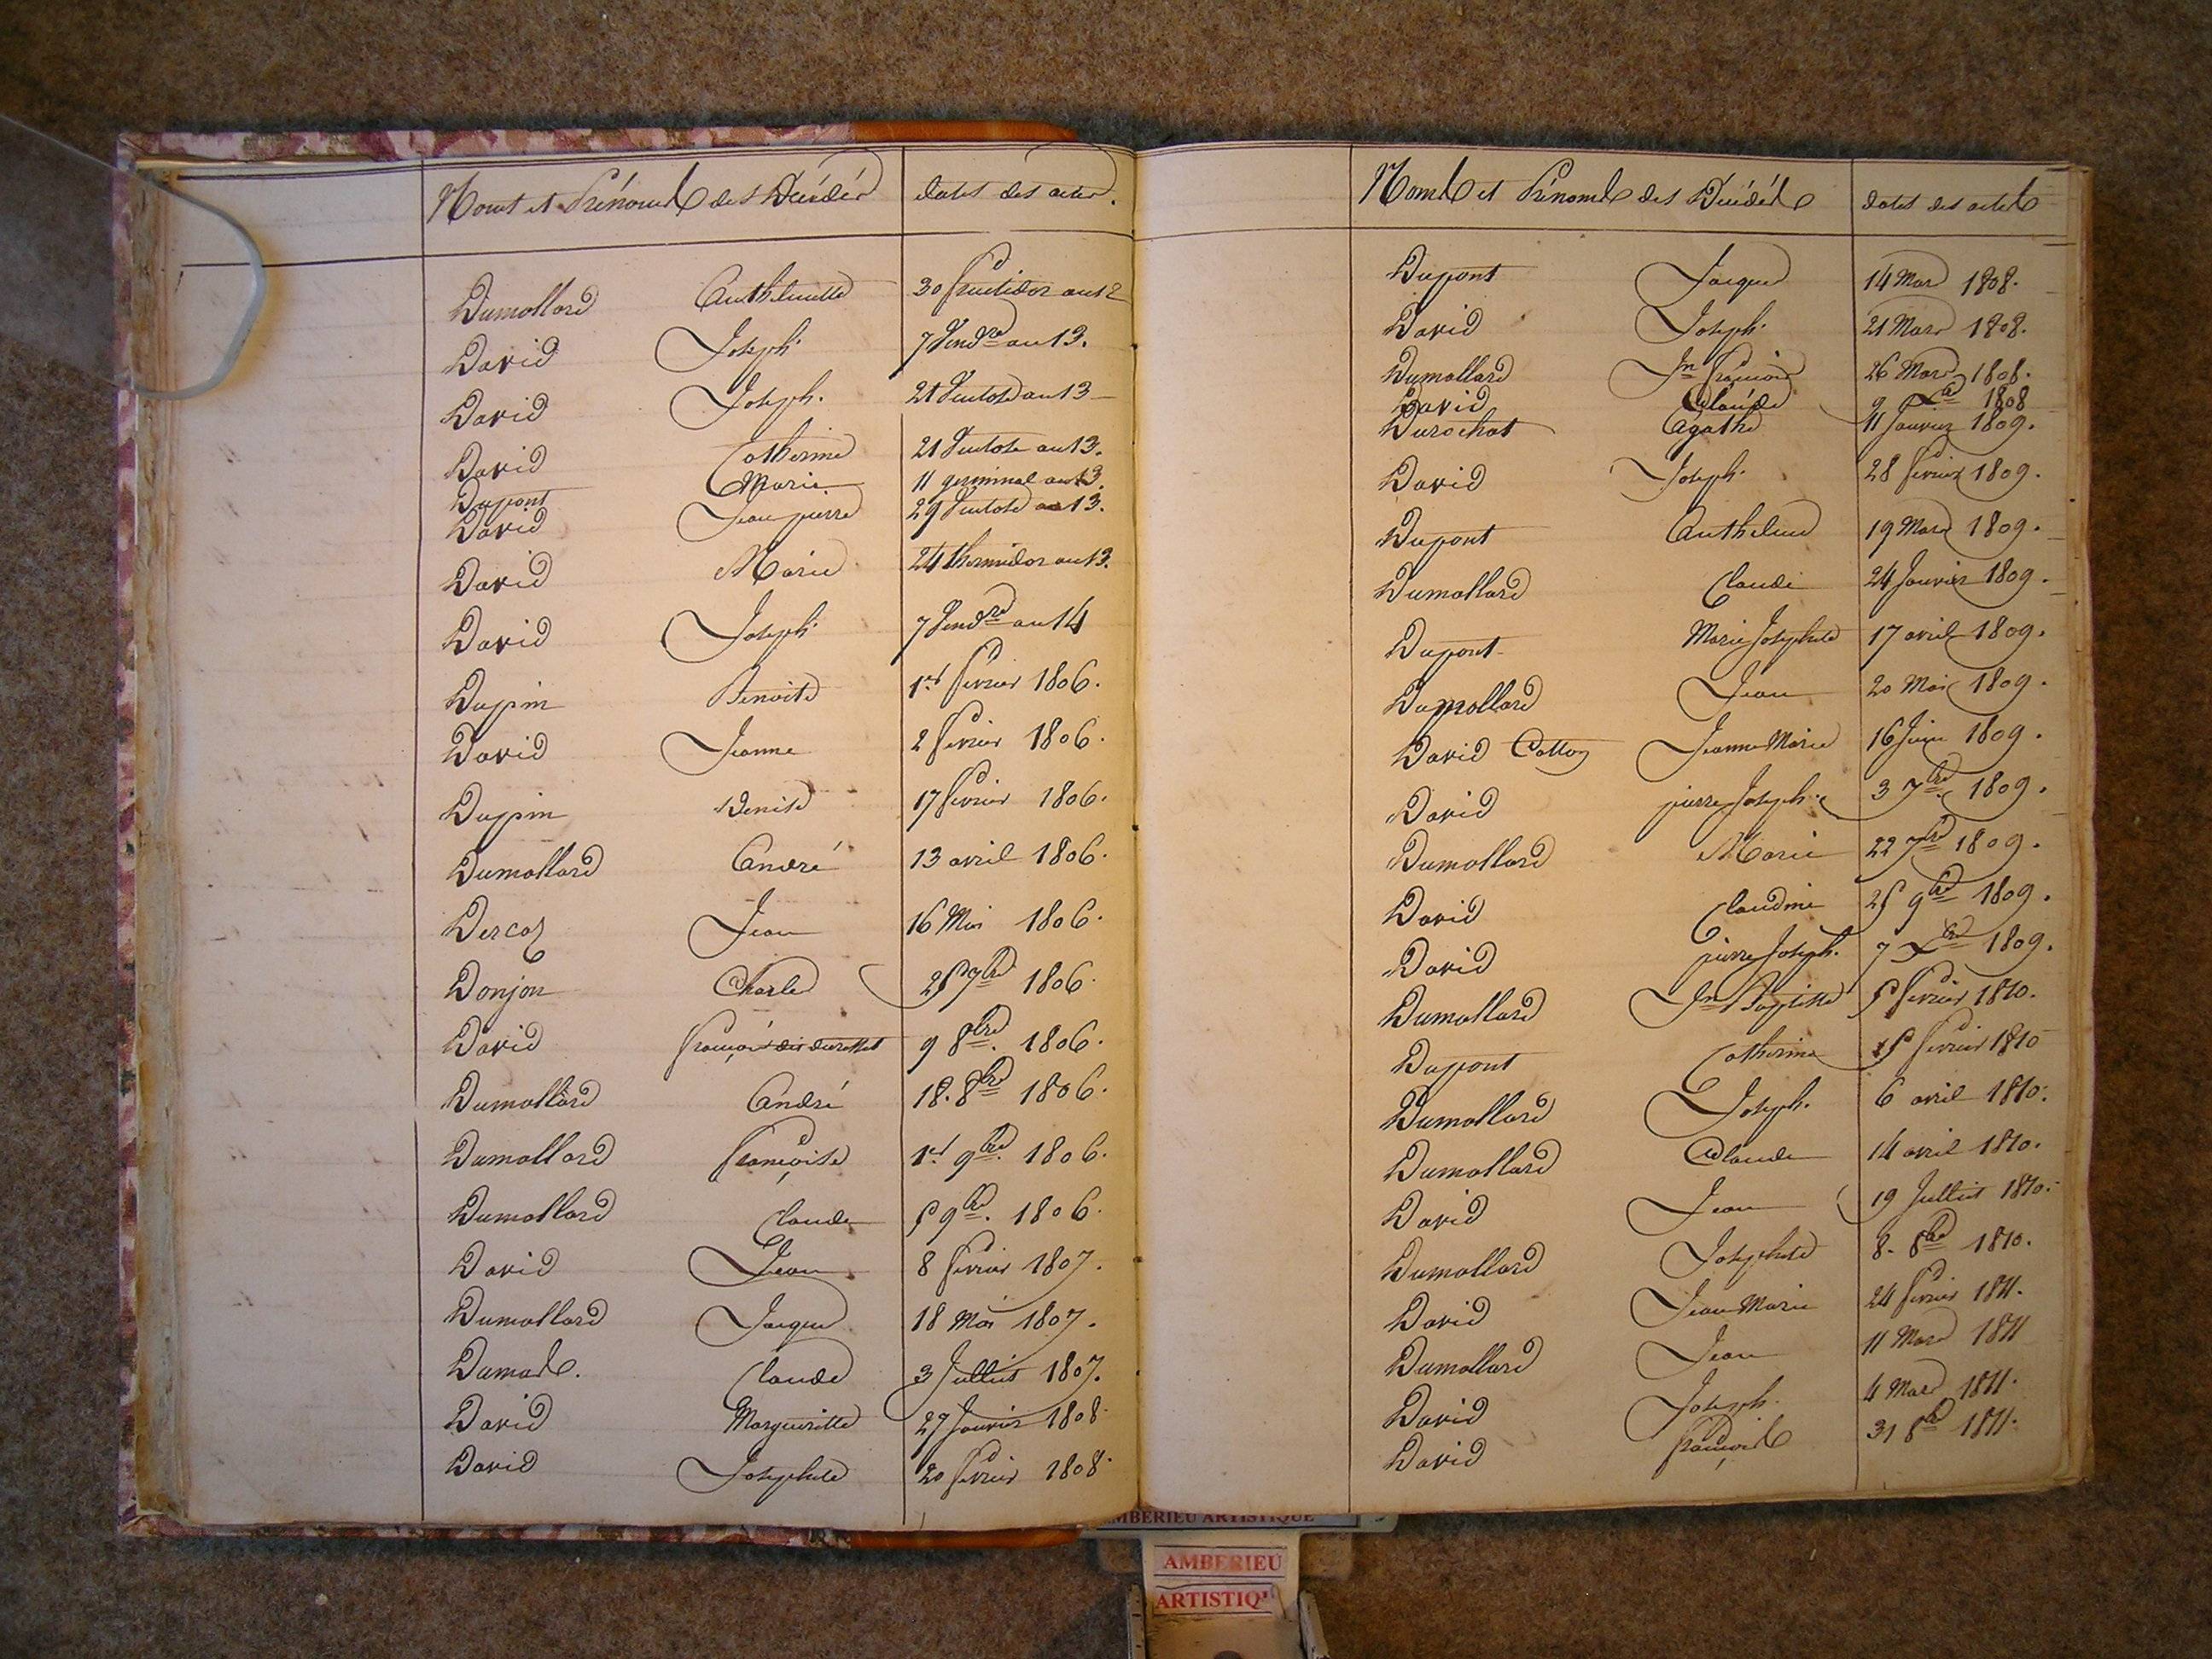 Noms et Prénoms des Décédés dates des actes.
Dumollard Anthelmette 30 fructidor an 12
David Joseph 7 Vend.re an 13.
David Joseph. 21 Ventose an 13
David Catherine 21 Ventose an 13.
Dupont Marie 11 germinal an 13.
David Jean pierre 29 Ventose an 13.
David Marie 24 thermidor an 13.
David Joseph 7 Vend.re an 14
Dupin Benoite 1er fevrier 1806.
David Jeanne 2 fevrier 1806.
Dupin Denise 17 fevrier 1806.
Dumollard André 13 avril 1806.
Jean 16 Mai 1806.
Donjon Charle 1806.
David françois dit 9 8bre. 1806.
Dumollard André 18. 8bre 1806.
Dumollard françoise 1er 9bre. 1806.
Dumollard Claude 5 9bre. 1806.
David Jean 8 fevrier 1807.
Dumollard Jacque 18 Mai 1807.
Dumas. Claude 3 Julliet 1807.
David Margueritte 27 Janvier 1808.
David Josephte 20 fevrier 1808.
Noms et Prénoms des Décédés dates des actes
Dupont Jacque 14 Mars 1808.
David Joseph. 21 Mars 1808.
Dumollard Jn françois 26 Mars 1808.
David Claude 9 Xbre 1808
Durochat Agathe 11 Janvier 1809.
David Joseph. 28 fevrier 1809.
Dupont Anthelme 19 Mars 1809.
Dumollard Claude 24 Janvier 1809.
Dupont Marie Josephte 17 avril 1809.
Dumollard Jean 20 Mai 1809.
David Jeanne Marie 16 Juin 1809.
David pierre Joseph. 3 7bre. 1809.
Dumollard Marie 22 7bre 1809.
David Claudine 25 9bre 1809.
David pierre Joseph. 7 Xbre 1809.
Dumollard Jn Baptiste 5 fevrier 1810.
Dupont Catherine fevrier 1810
Dumollard Joseph. 6 avril 1810.
Dumollard Claude 14 avril 1810.
David Jean 19 Julliet 1810.
Dumollard Josephte 8. 8bre 1810.
David Jean Marie 24 fevrier 1811.
Dumollard Jean 11 Mars 1811
David Joseph. 4 Mars 1811.
David françois 31 8bre 1811.
AMBERIEU ARTISTIQUE
AMBERIEU
ARTISTIQU